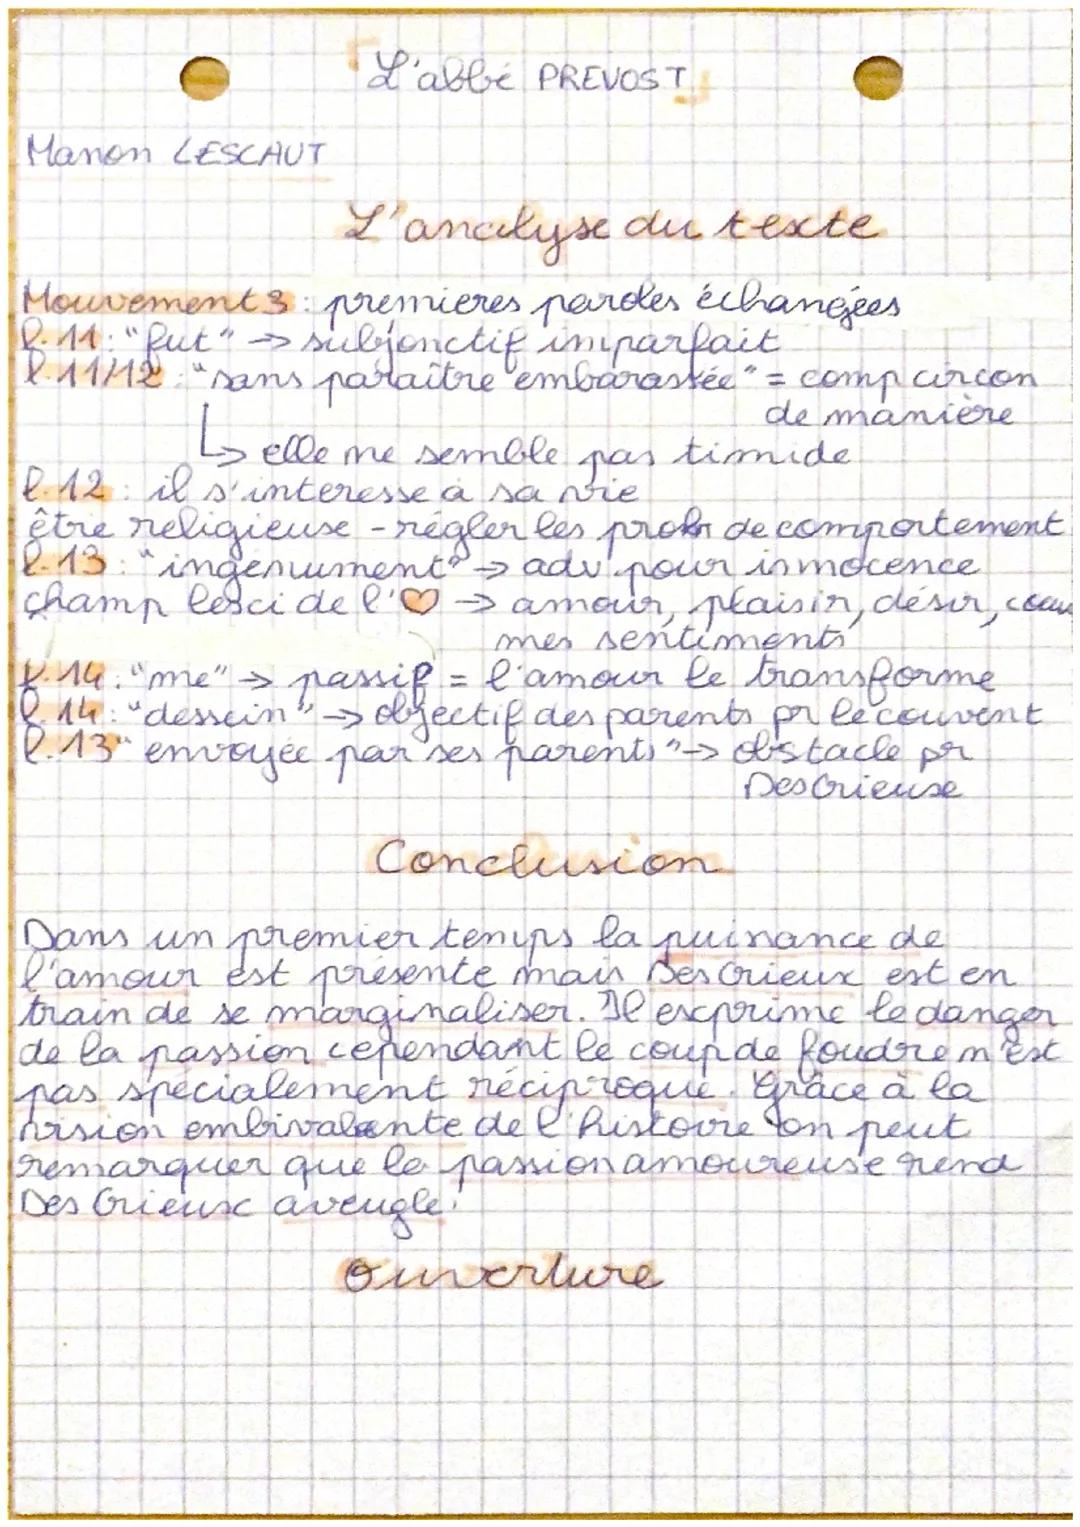 「L'abbé PREVOST」
Manon LESCAUT
L'analyse du texte
Mouvement 3 : premieres paroles échangées
l.11 : "fut" → subjonctif imparfait
l.11/12 : "sans paraître embarassée" = comp circon
de manière
↳ elle ne semble pas timide
l.12 : il s'interesse a sa vie
être religieuse - régler les probs de comportement
l.13 : "ingénument" → adv. pour innocence
champ lexci de l'♡ → amour, plaisir, désir, coeu
mes sentiments
l.14 : "me" → passif = l'amour le transforme
l.14 : "dessein" → objectif des parents pr le couvent
l.13 "envoyée par ses parents" → obstacle pr
Des Grieuse
Conclusion
Dans un premier temps la puissance de
l'amour est présente mais Des Grieux est en
train de se marginaliser. Il exprime le danger
de la passion cependant le coup de foudre n'est
pas spécialement réciproque. Grâce à la
vision embivalente de l'histoire on peut
remarquer que la passion amoureuse rend
Des Grieux aveugle.
Ouverture